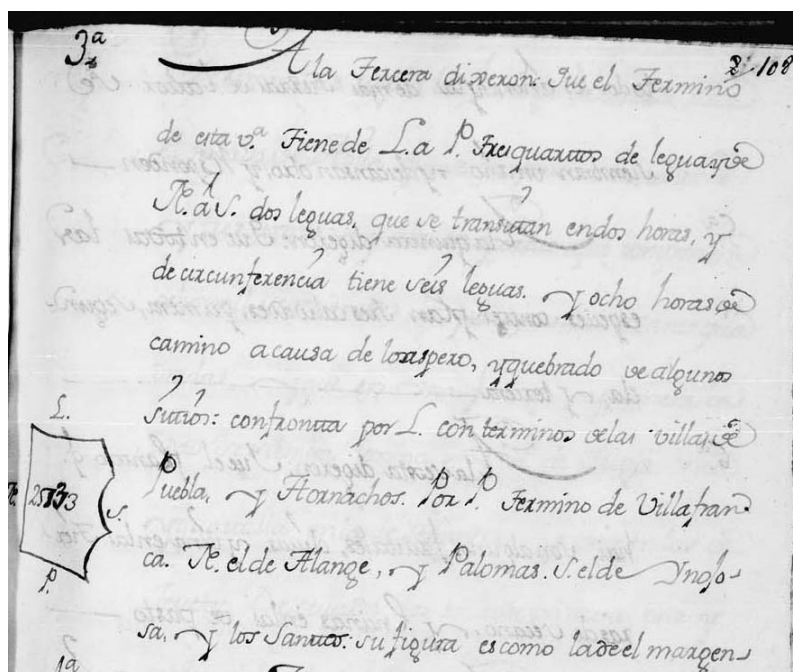 3ª
2-108
A la Tercera dixeron: Que el Termino
de esta vª. Tiene de L. a P. Tres quartos de legua, y de
N. a S. dos leguas, que se transitan en dos horas, y
de circunferencia tiene seis leguas. Y ocho horas de
camino a causa de lo aspero, y quebrado de algunos
sitios: confronta por L. con terminos de las villas de
L.
Puebla, y Hornachos. Por P. Termino de Villafran-
N. S.
ca. N. el de Alange, y Palomas. S. el de Ynojo-
P.
sa, y los Santos: su figura es como la de el margen